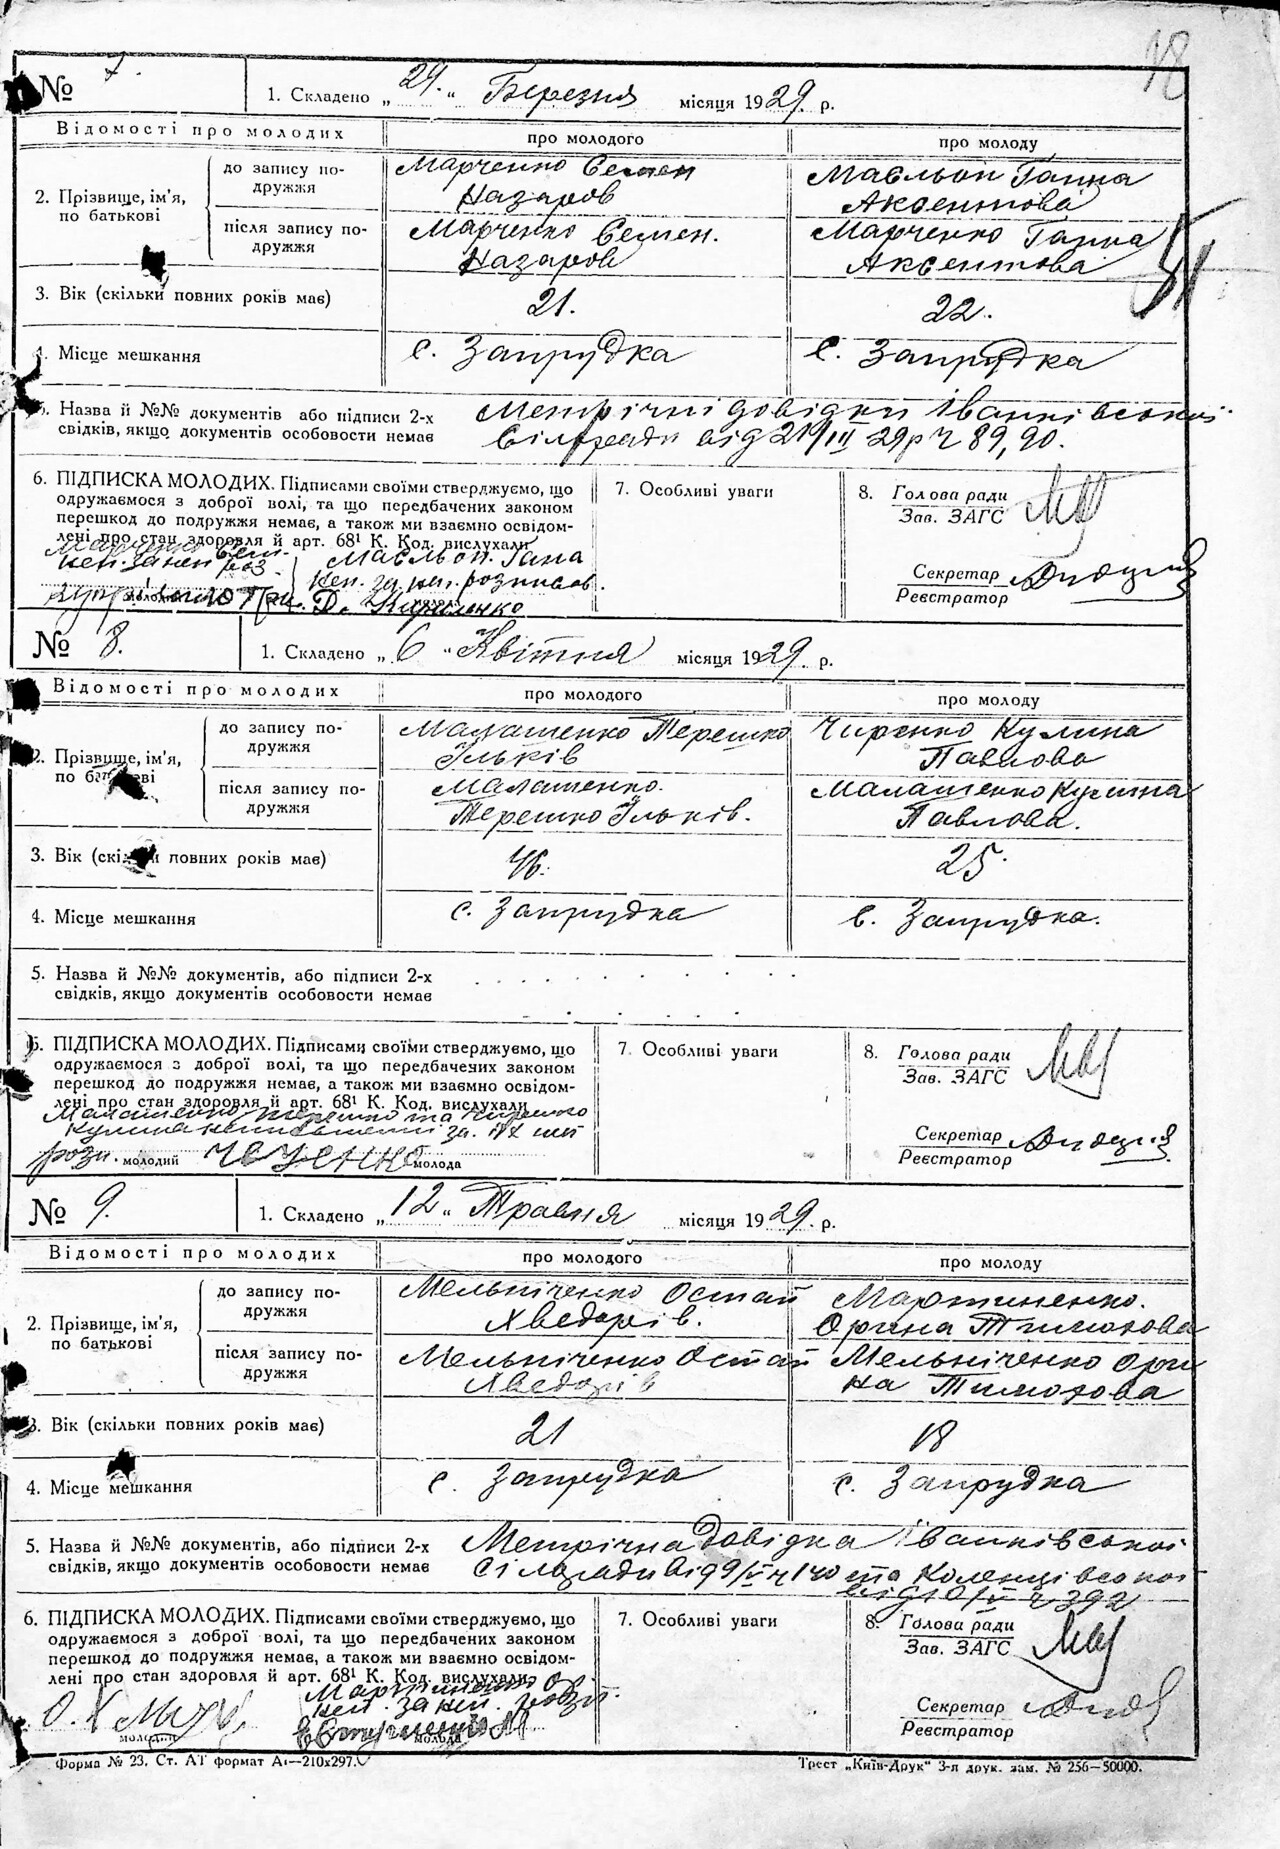 18
№ 7. 1. Складено „29.“ Березня місяця 1929. р.
Відомості про молодих про молодого про молоду
2. Прізвище, ім'я, по батькові
до запису подружжя
Марченко Семен Маєльон Ганна
Назаров Аксентова
після запису по- Марченко Семен. Марченко Ганна
дружжя Назаров Аксентова
51
3. Вік (скільки повних років має) 21. 22.
4. Місце мешкання с. Запрудка с. Запрудка
5. Назва й №№ документів або підписи 2-х Метрічні довідки Іванківської
свідків, якщо документів особовости немає Сільради від 29/III 29р ч 89, 90.
6. ПІДПИСКА МОЛОДИХ. Підписами своїми стверджуємо, що 7. Особливі уваги 8. Голова ради
одружаємося з доброї волі, та що передбачених законом Зав. ЗАГС
перешкод до подружжя немає, а також ми взаємно освідом-
лені про стан здоровля й арт. 68¹ К. Код. вислухали
Марченко Сем. Маєльон. Гана
Секретар
Реєстратор
молодий молода
№ 8. 1. Складено „6“ Квітня місяця 1929. р.
Відомості про молодих про молодого про молоду
до запису по- Малашенко Терешко Чиренко Кулина
дружжя Ільків Павлова
2. Прізвище, ім'я,
по батькові
після запису по- Малашенко. Малашенко Кулина
дружжя Терешко Ільків. Павлова.
3. Вік (скільки повних років має) 46. 25.
4. Місце мешкання с. Запрудка с. Запрудка.
5. Назва й №№ документів, або підписи 2-х
свідків, якщо документів особовости немає
6. ПІДПИСКА МОЛОДИХ. Підписами своїми стверджуємо, що 7. Особливі уваги 8. Голова ради
одружаємося з доброї волі, та що передбачених законом Зав. ЗАГС
перешкод до подружжя немає, а також ми взаємно освідом-
лені про стан здоровля й арт. 68¹ К. Код. вислухали
Малашенко Терешко та Чиренко
Кулина неписьменні за їх
Секретар
Реєстратор
розп. молодий молода
№ 9. 1. Складено „12“ Травня місяця 1929. р.
Відомості про молодих про молодого про молоду
до запису по- Мельніченко Остап Мартиненко.
дружжя Хведорів. Орина Тимохова
2. Прізвище, ім'я,
по батькові
після запису по- Мельніченко Остап Мельніченко Ори
дружжя Хведорів на Тимохова
3. Вік (скільки повних років має) 21 18
4. Місце мешкання с. Запрудка с. Запрудка
5. Назва й №№ документів, або підписи 2-х Метрічна довідка Іванківської
свідків, якщо документів особовости немає Сілради від 9/V ч 140 та Коленцівської
від 10/V ч 392
6. ПІДПИСКА МОЛОДИХ. Підписами своїми стверджуємо, що 7. Особливі уваги 8. Голова ради
одружаємося з доброї волі, та що передбачених законом Зав. ЗАГС
перешкод до подружжя немає, а також ми взаємно освідом-
лені про стан здоровля й арт. 68¹ К. Код. вислухали
Мартиненко О.
Секретар
Реєстратор
молодий молода
Форма № 23. Ст. АТ формат А₄—210х297. Трест „Київ-Друк“ 3-я друк. зам. № 256—50000.